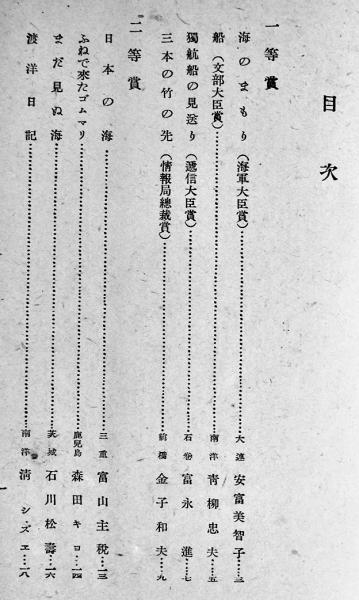 目次
一等賞
海のまもり(海軍大臣賞)……大連 安富美智子…三
船(文部大臣賞)……南洋 青柳忠夫…五
獨航船の見送り(遞信大臣賞)……石巻 富永進…七
三本の竹の先(情報局總裁賞)……前橋 金子和夫…九
二等賞
日本の海……三重 富山主税…一三
ふねで來たゴムマリ……鹿兒島 森田キヨ…一四
まだ見ぬ海……茨城 石川松壽…一六
渡洋日記……南洋 清シズエ…一八